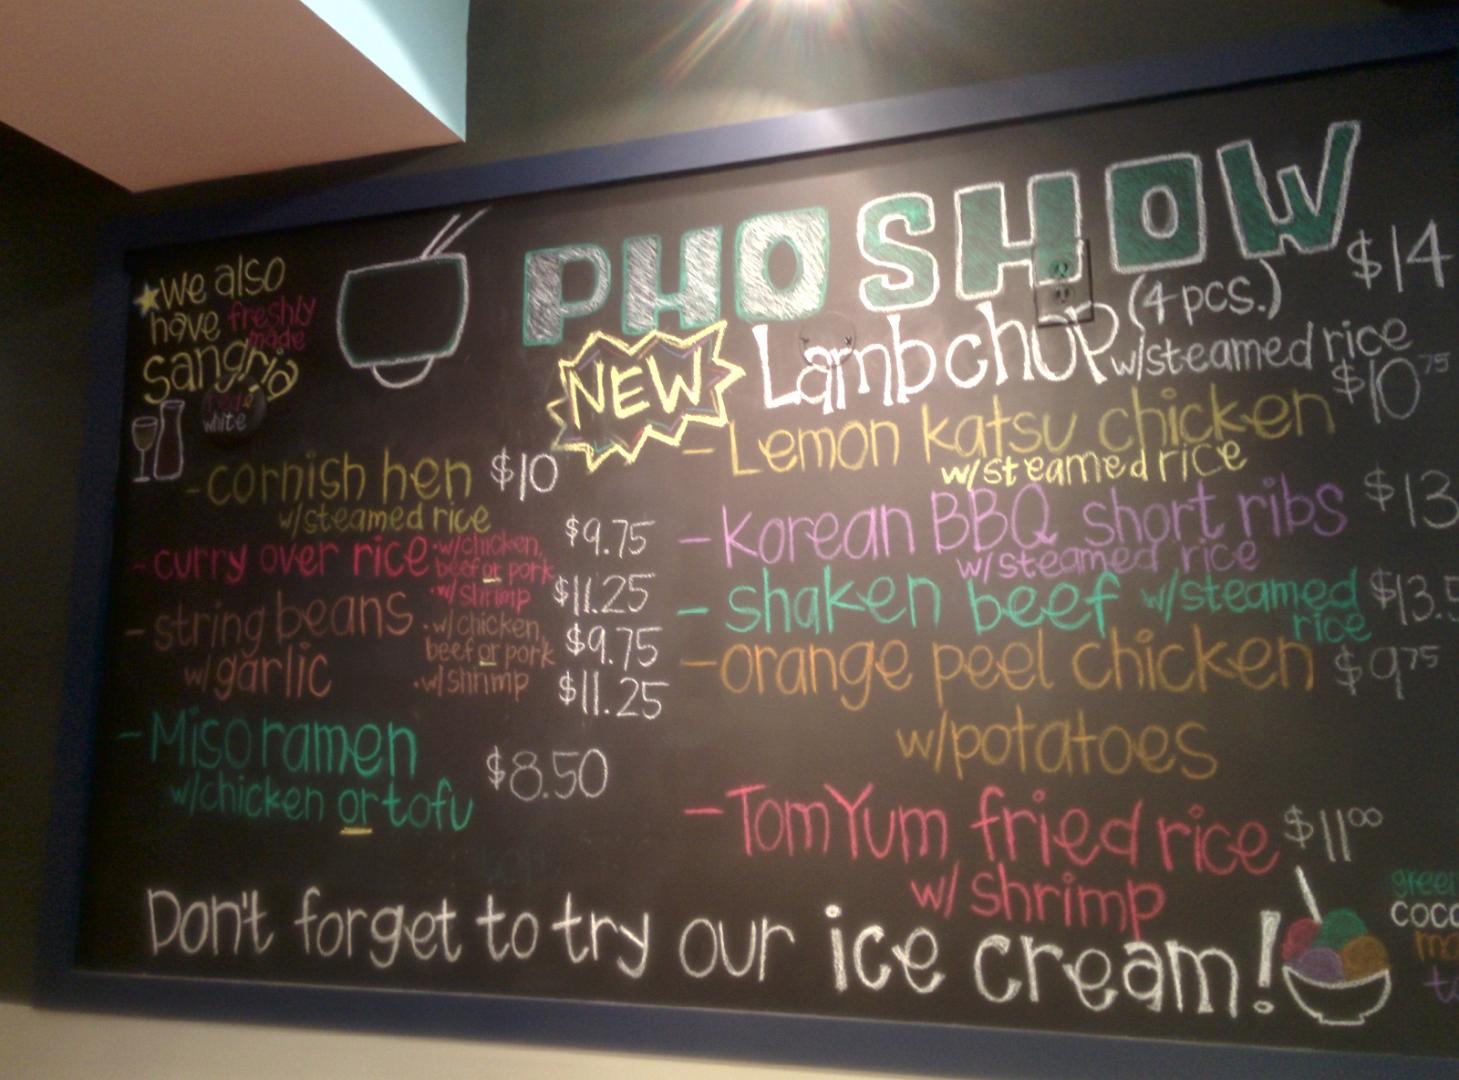 PHO SHOW
we also
have freshly
made
sangria
red &
white
-cornish hen $10
w/steamed rice
-curry over rice •w/chicken, $9.75
beef or pork
•w/shrimp $11.25
-string beans •w/chicken,
beef or pork $9.75
w/garlic •w/shrimp $11.25
-Miso ramen $8.50
w/chicken or tofu
NEW Lambchop (4 pcs.) $14
w/steamed rice
-Lemon katsu chicken $10 75
w/steamed rice
-Korean BBQ short ribs $13
w/steamed rice
-shaken beef w/steamed $13.5
rice
-orange peel chicken $9 75
w/potatoes
-Tom Yum fried rice $11 00
w/ shrimp
Don't forget to try our ice cream!
green
coco